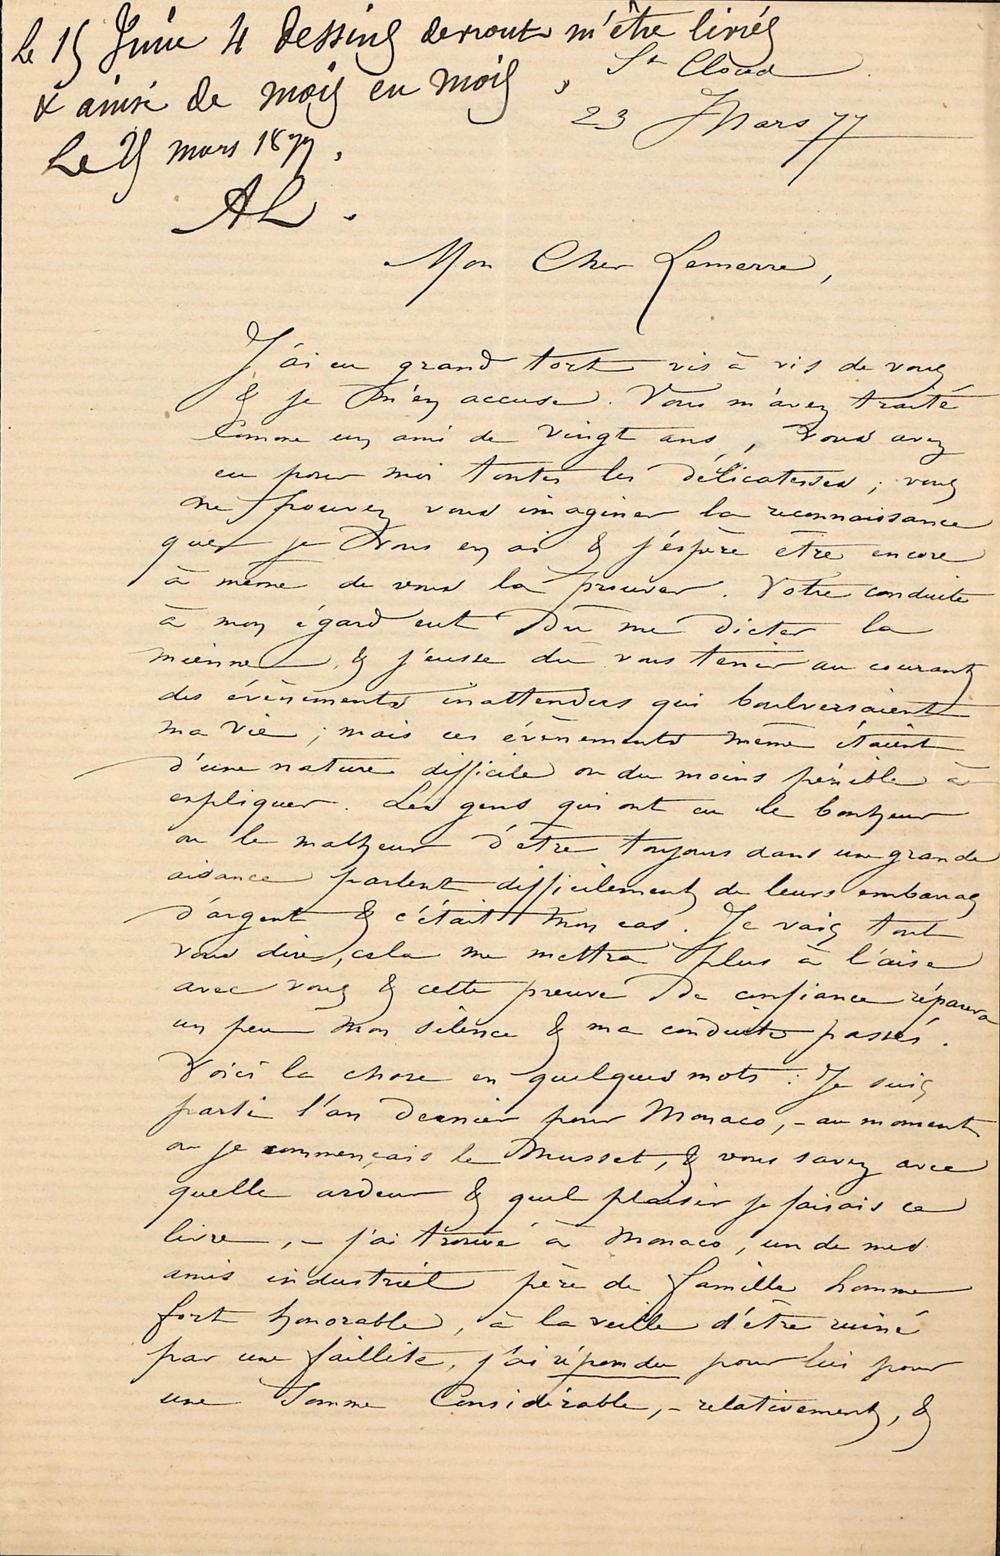 Le 15 Juin 4 dessins devront m'être livrés
& ainsi de mois en mois,
Le 25 mars 1877.
AL.
St Cloud
23 Mars 77
Mon Cher Lemerre,
J'ai eu grand tort vis à vis de vous
& je m'en accuse. Vous m'avez traité
comme un ami de vingt ans, vous avez
eu pour moi toutes les délicatesses ; vous
ne pouvez vous imaginer la reconnaissance
que je vous en ai & j'espère être encore
à même de vous la prouver. Votre conduite
à mon égard eut dû me dicter la
mienne, & j'eusse dû vous tenir au courant
des évènements inattendus qui boulversaient
ma vie ; mais ces évènements même étaient
d'une nature difficile ou du moins pénible à
expliquer. Les gens qui ont eu le bonheur
ou le malheur d'être toujours dans une grande
aisance parlent difficilement de leurs embarras
d'argent & c'était mon cas. Je vais tout
vous dire, cela me mettra plus à l'aise
avec vous & cette preuve de confiance réparera
un peu mon silence & ma conduite passés.
Voici la chose en quelques mots : Je suis
parti l'an dernier pour Monaco, - au moment
ou je commençais le Musset, & vous savez avec
quelle ardeur & quel plaisir je faisais ce
livre, - j'ai trouvé à Monaco, un de mes
amis industriel père de famille homme
fort honorable, à la veille d'être ruiné
par une faillite, j'ai répondu pour lui pour
une somme considérable, - relativement, &